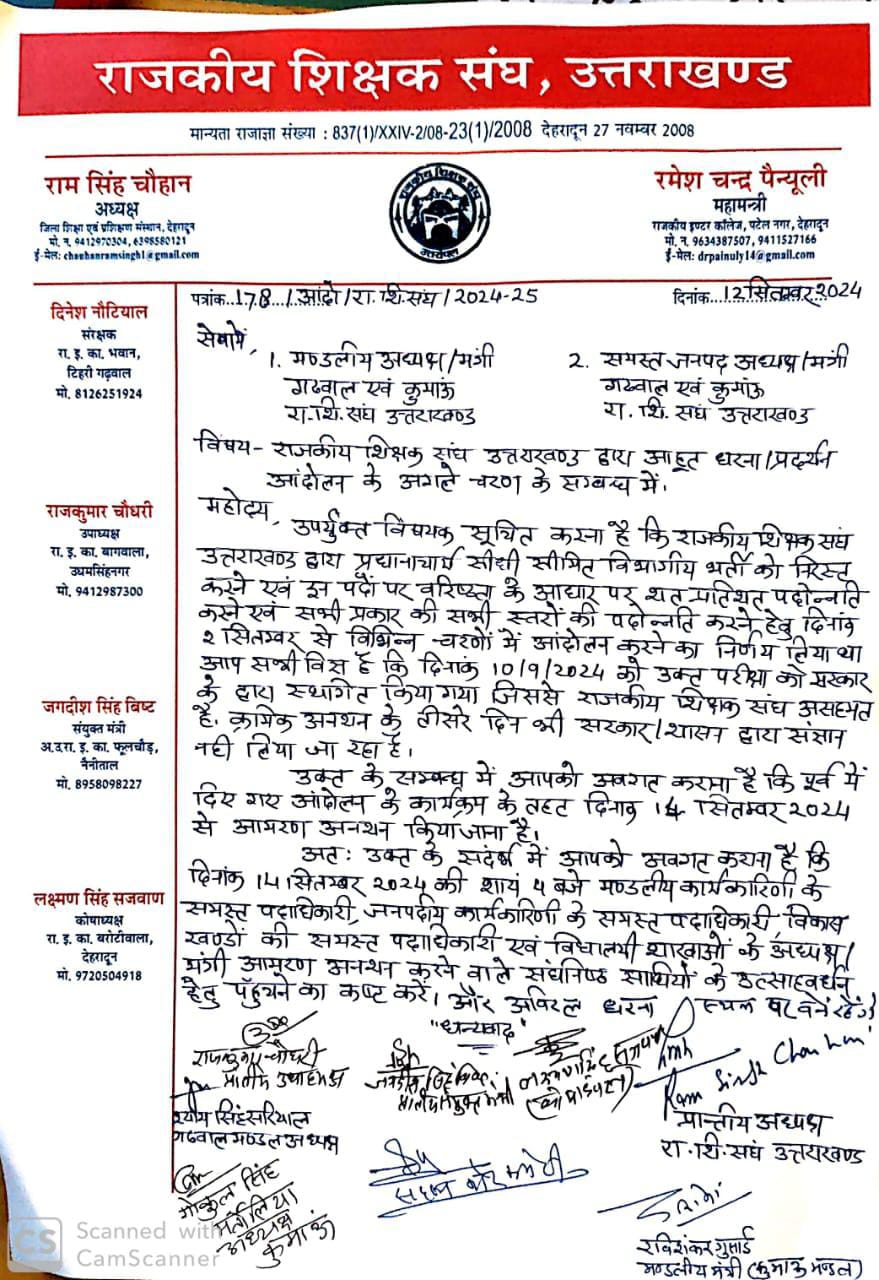 राजकीय शिक्षक संघ, उत्तराखण्ड
मान्यता राजाज्ञा संख्या : 837(1)/XXIV-2/08-23(1)/2008 देहरादून 27 नवम्बर 2008
राम सिंह चौहान
अध्यक्ष
जिला शिक्षा एवं प्रशिक्षण संस्थान, देहरादून
मो. न. 9412970304, 6398580121
ई-मेल: chauhanramsingh1@gmail.com
राजकीय शिक्षक संघ
उत्तरांचल
रमेश चन्द्र पैन्यूली
महामन्त्री
राजकीय इण्टर कॉलेज, पटेल नगर, देहरादून
मो. न. 9634387507, 9411527166
ई-मेल: drpainuly14@gmail.com
दिनेश नौटियाल
संरक्षक
रा. इ. का. भवान,
टिहरी गढ़वाल
मो. 8126251924
राजकुमार चौधरी
उपाध्यक्ष
रा. इ. का. बागवाला,
उधमसिंहनगर
मो. 9412987300
जगदीश सिंह बिष्ट
संयुक्त मंत्री
अ.उ.रा. इ. का. फूलचौड़,
नैनीताल
मो. 8958098227
लक्ष्मण सिंह सजवाण
कोषाध्यक्ष
रा. इ. का. बरोटीवाला,
देहरादून
मो. 9720504918
पत्रांक...178/आंदो/रा.शि.संघ/2024-25
दिनांक...12 सितम्बर 2024
सेवामें,
1. मण्डलीय अध्यक्ष/मंत्री
गढवाल एवं कुमाऊं
रा.शि.संघ उत्तराखण्ड
2. समस्त जनपद अध्यक्ष/मंत्री
गढवाल एवं कुमाऊं
रा.शि.संघ उत्तराखण्ड
विषय- राजकीय शिक्षक संघ उत्तराखण्ड द्वारा आहूत धरना/प्रदर्शन
आंदोलन के अगले चरण के सम्बन्ध में।
महोदय,
उपर्युक्त विषयक सूचित करना है कि राजकीय शिक्षक संघ
उत्तराखण्ड द्वारा प्रधानाचार्य सीधी सीमित विभागीय भर्ती को निरस्त
करने एवं इन पदों पर वरिष्ठता के आधार पर शत प्रतिशत पदोन्नति
करने एवं सभी प्रकार की सभी स्तरों की पदोन्नति करने हेतु दिनांक
2 सितम्बर से विभिन्न चरणों में आंदोलन करने का निर्णय लिया था
आप सभी विज्ञ है कि दिनांक 10/9/2024 को उक्त परीक्षा को सरकार
के द्वारा स्थगित किया गया जिससे राजकीय शिक्षक संघ असहमत
है. क्रमिक अनशन के तीसरे दिन भी सरकार/शासन द्वारा संज्ञान
नही लिया जा रहा है।
उक्त के सम्बन्ध में आपको अवगत कराना है कि पूर्व में
दिए गए आंदोलन के कार्यक्रम के तहत दिनांक 14 सितम्बर 2024
से आमरण अनशन किया जाना है।
अतः उक्त के संदर्भ में आपको अवगत कराना है कि
दिनांक 14 सितम्बर 2024 की शायं 4 बजे मण्डलीय कार्यकारिणी के
समस्त पदाधिकारी, जनपदीय कार्यकारिणी के समस्त पदाधिकारी, विकास
खण्डों की समस्त पदाधिकारी एवं विद्यालयी शाखाओं के अध्यक्ष/
मंत्री आमरण अनशन करने वाले संघनिष्ठ साथियों के उत्साहवर्धन
हेतु पँहुचने का कष्ट करें। और अविरल धरना स्थल पर बने रहेंगे।
"धन्यवाद"
राजकुमार चौधरी
प्रान्तीय उपाध्यक्ष
जगदीश सिंह बिष्ट
लक्ष्मण सिंह सजवाण
(कोषाध्यक्ष)
Ram Singh Chauhan
प्रान्तीय अध्यक्ष
रा.शि.संघ उत्तराखण्ड
श्याम सिंह सरियाल
गढवाल मण्डल अध्यक्ष
गोकुल सिंह
मर्तोलिया
अध्यक्ष
कुमाऊं
रविशंकर गुसाईं
मण्डलीय मंत्री (कुमाऊं मण्डल)
CS Scanned with
CamScanner